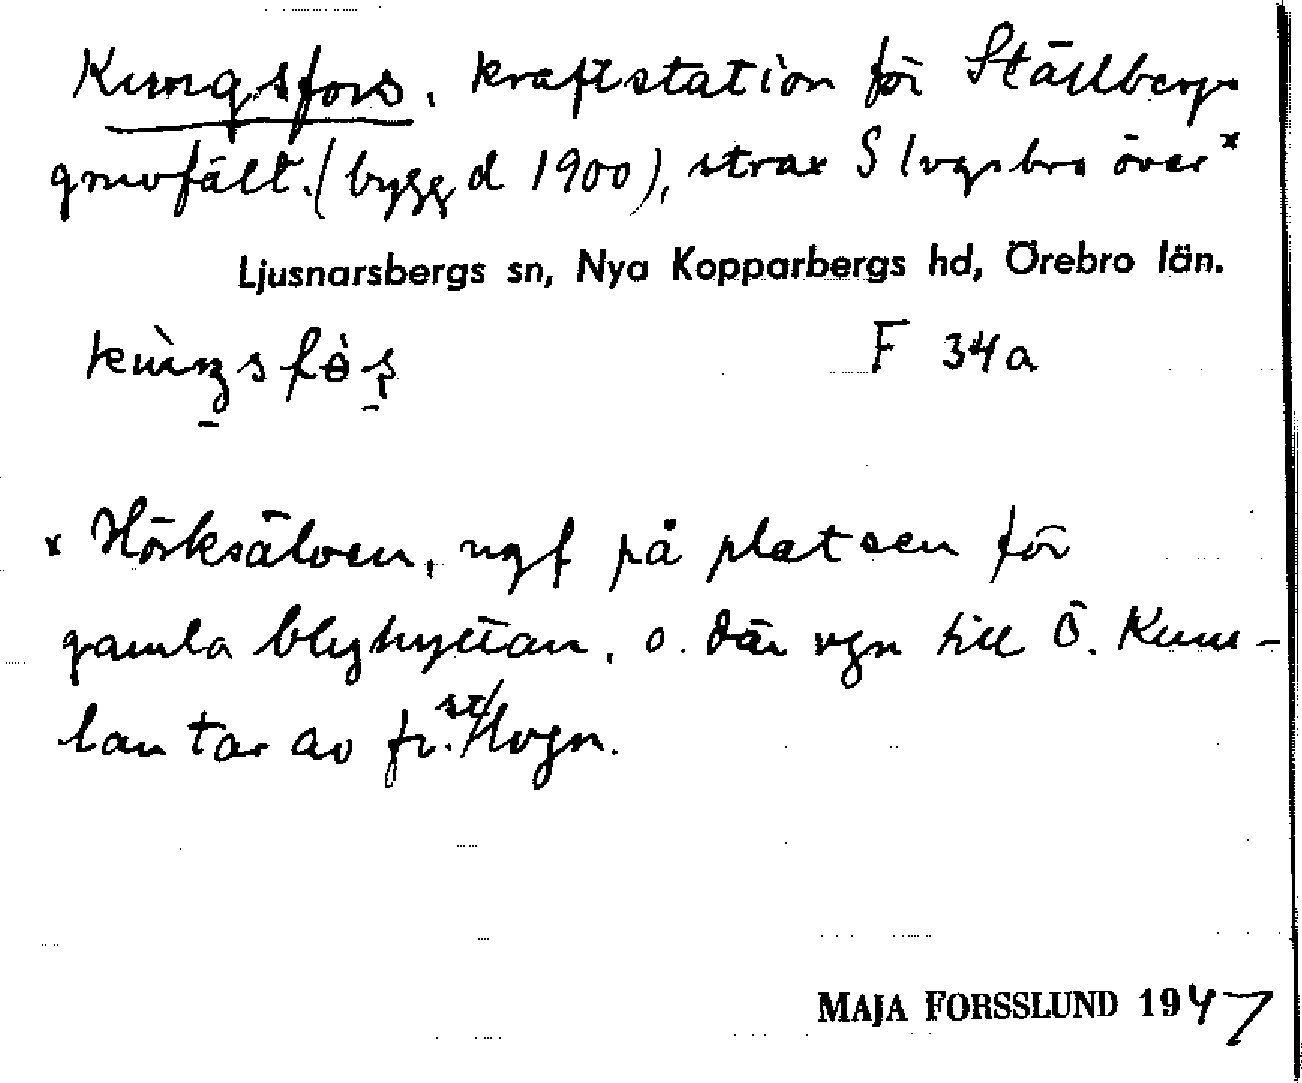 Kungsfors, kraftstation för Ställbergs
gruvfält. (byggd 1900), strax S lvgsbro över x
Ljusnarsbergs sn, Nya Kopparbergs hd, Örebro län.
F 34a
x Hörksälven, ngf på platsen för
gamla blyhyttan, o. där vgn till Ö. Kum-
lan tar av fr. st/Hvgn.
MAJA FORSSLUND 1947